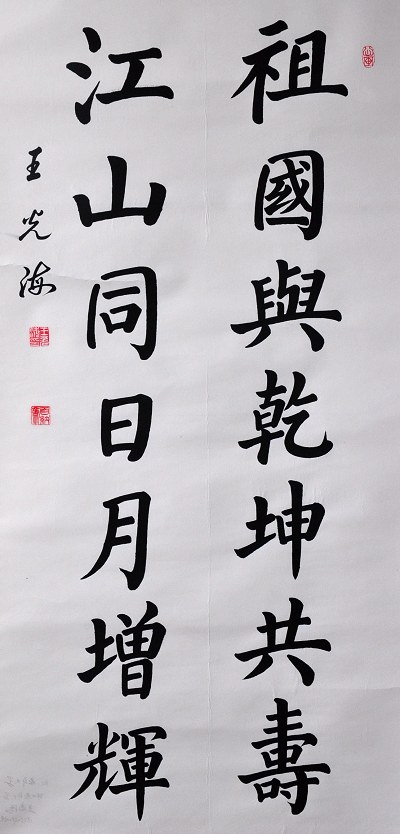 祖國與乾坤共壽
江山同日月增輝
王光海